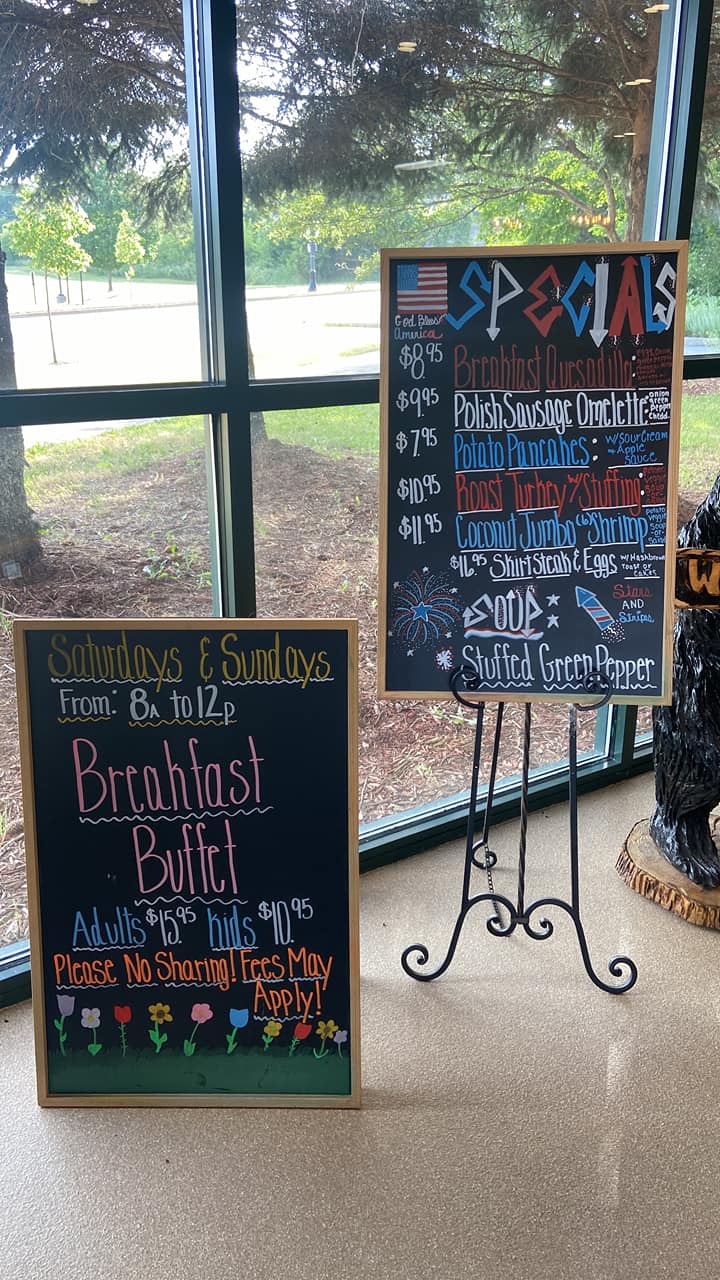 Saturdays & Sundays
From: 8A to 12p
Breakfast
Buffet
Adults $15.95 Kids $10.95
Please No Sharing! Fees May
Apply!
SPECIALS
God Bless
America
$8.95 Breakfast Quesadilla:
$9.95 Polish Sausage Omelette: onion green Pepper Chedd.
$7.95 Potato Pancakes: w/Sour Cream + Apple Sauce
$10.95 Roast Turkey w/Stuffing: potato veggie soup or
$11.95 Coconut Jumbo (6) Shrimp potato veggie soup -or-
$16.95 Skirt Steak & Eggs w/Hashbrown Toast or Cakes
SOUP
Stars
AND
Stripes
Stuffed Green Pepper